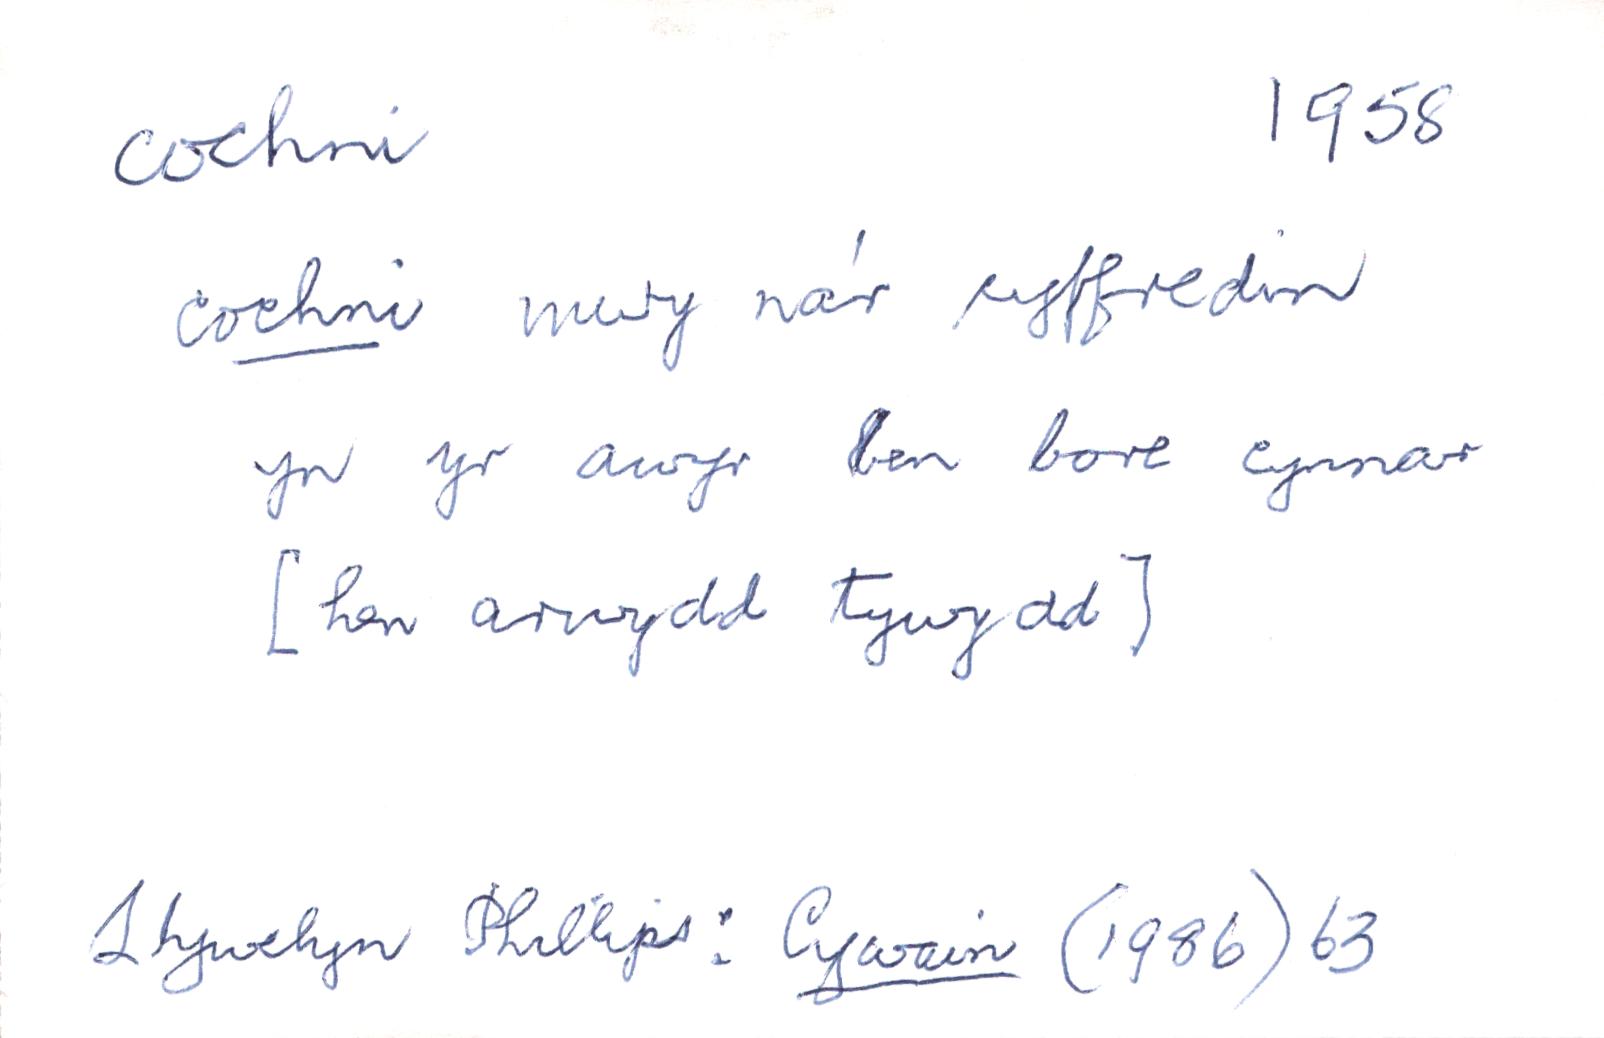 cochni 1958
cochni mwy na'r cyffredin
yn yr awyr ben bore cynnar
[hen arwydd tywydd]
Llywelyn Phillips: Cywain (1986) 63